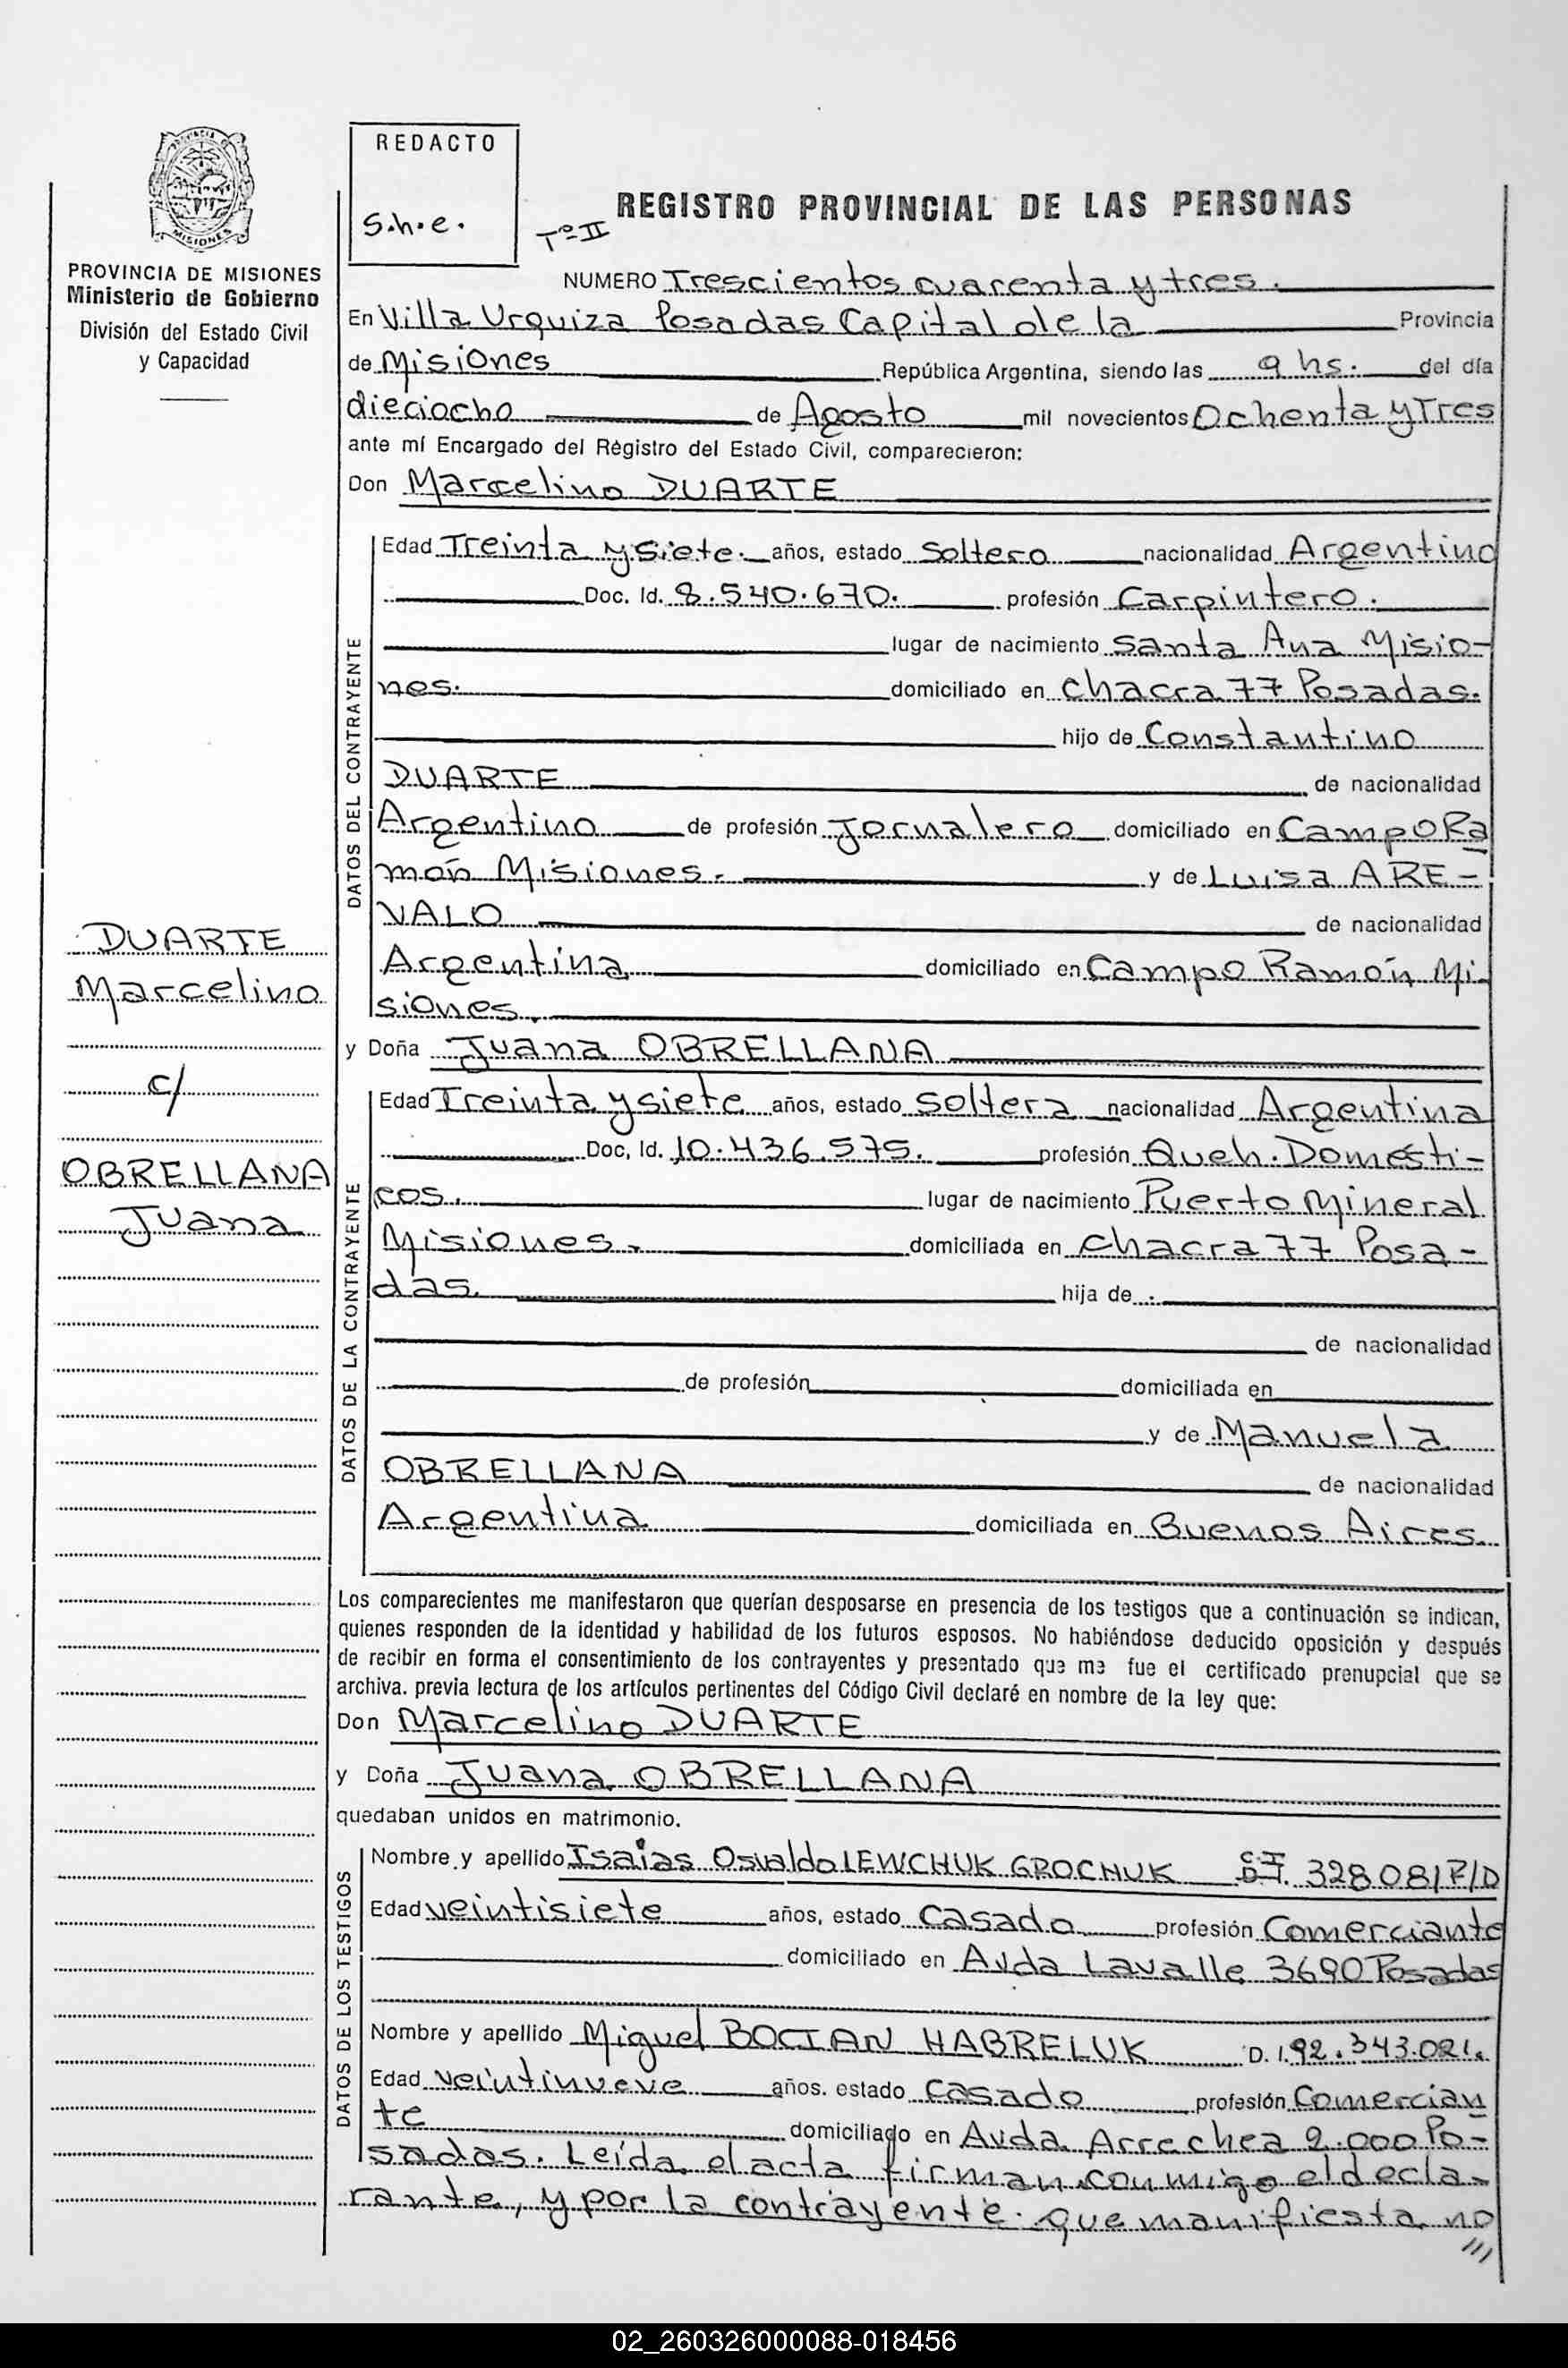 REDACTO
S.h.e.
Tº II
REGISTRO PROVINCIAL DE LAS PERSONAS
MISIONES
PROVINCIA DE MISIONES
Ministerio de Gobierno
División del Estado Civil
y Capacidad
NUMERO Trescientos cuarenta y tres.
En Villa Urquiza Posadas Capital de la Provincia
de Misiones República Argentina, siendo las 9 hs. del día
dieciocho de Agosto mil novecientos Ochenta y Tres
ante mí Encargado del Registro del Estado Civil, comparecieron:
Don Marcelino DUARTE
DATOS DEL CONTRAYENTE
Edad Treinta y siete. años, estado Soltero nacionalidad Argentino
Doc. Id. 8.540.670. profesión Carpintero.
lugar de nacimiento Santa Ana Misio-
nes. domiciliado en Chacra 77 Posadas.
hijo de Constantino
DUARTE de nacionalidad
Argentino de profesión Jornalero domiciliado en Campo Ra
món Misiones. y de Luisa ARE-
VALO de nacionalidad
Argentina domiciliado en Campo Ramón Mi-
siones.
DUARTE
Marcelino
c/
OBRELLANA
Juana
y Doña Juana OBRELLANA
DATOS DE LA CONTRAYENTE
Edad Treinta y siete años, estado Soltera nacionalidad Argentina
Doc, Id. 10.436.575. profesión Queh. Domésti-
cos. lugar de nacimiento Puerto Mineral
Misiones. domiciliada en Chacra 77 Posa-
das. hija de
de nacionalidad
de profesión domiciliada en
y de Manuela
OBRELLANA de nacionalidad
Argentina domiciliada en Buenos Aires.
Los comparecientes me manifestaron que querían desposarse en presencia de los testigos que a continuación se indican,
quienes responden de la identidad y habilidad de los futuros esposos. No habiéndose deducido oposición y después
de recibir en forma el consentimiento de los contrayentes y presentado que me fue el certificado prenupcial que se
archiva. previa lectura de los artículos pertinentes del Código Civil declaré en nombre de la ley que:
Don Marcelino DUARTE
y Doña Juana OBRELLANA
quedaban unidos en matrimonio.
DATOS DE LOS TESTIGOS
Nombre y apellido Isaias Osvaldo LEWCHUK GROCHUK C.I. D.I. 328.081 P/D
Edad veintisiete años, estado Casado profesión Comerciante
domiciliado en Avda Lavalle 3690 Posadas
Nombre y apellido Miguel BOCIAN HABRELUK D. I. 92.343.021.
Edad veintinueve años. estado Casado profesión Comercian
te domiciliado en Avda. Arrechea 2.000 Po-
sadas. Leída el acta firman conmigo el decla-
rante, y por la contrayente que manifiesta no
///
02_260326000088-018456